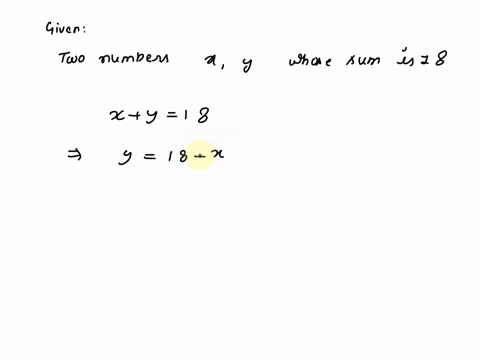 Given:
Two numbers x, y whose sum is 18
x + y = 18
⇒ y = 18 - x